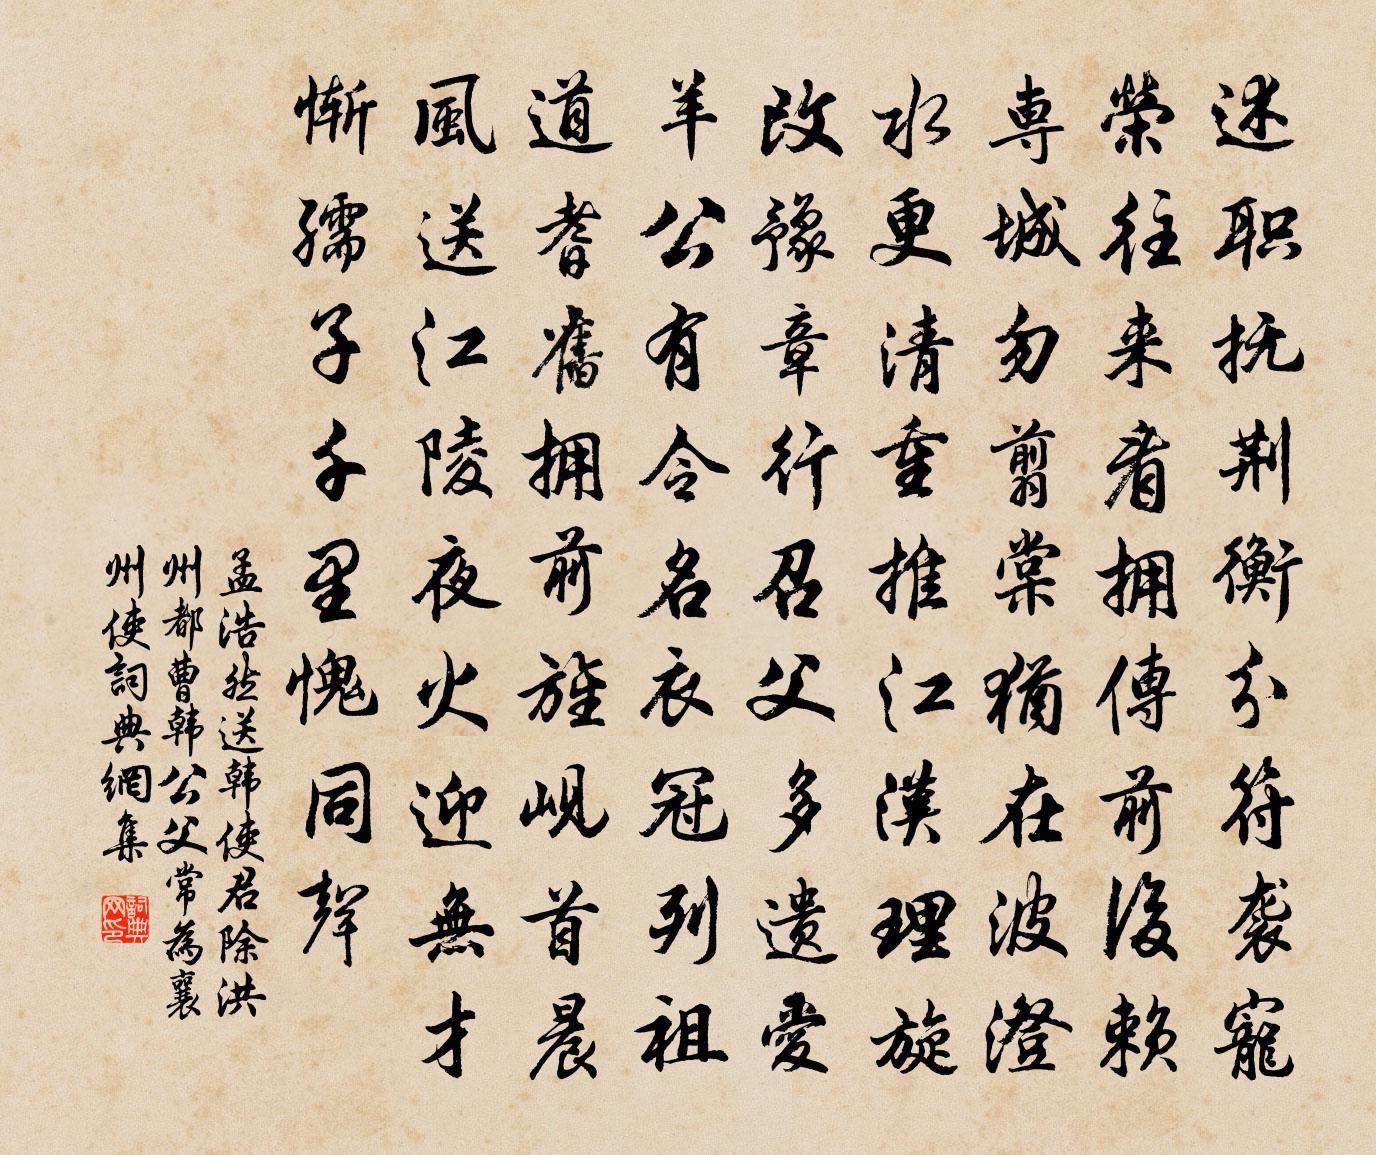 述职抚荆衡分符袭寵
榮往来看拥傳前後赖
専城勿翦棠猶在波澄
水更清重推江漢理旋
改豫章行召父多遗愛
羊公有令名衣冠列祖
道耆舊拥前旌岘首晨
風送江陵夜火迎無才
惭孺子千里愧同聲
孟浩然送韩使君除洪
州都曹韩公父常為襄
州使詞典網集
詞典网印